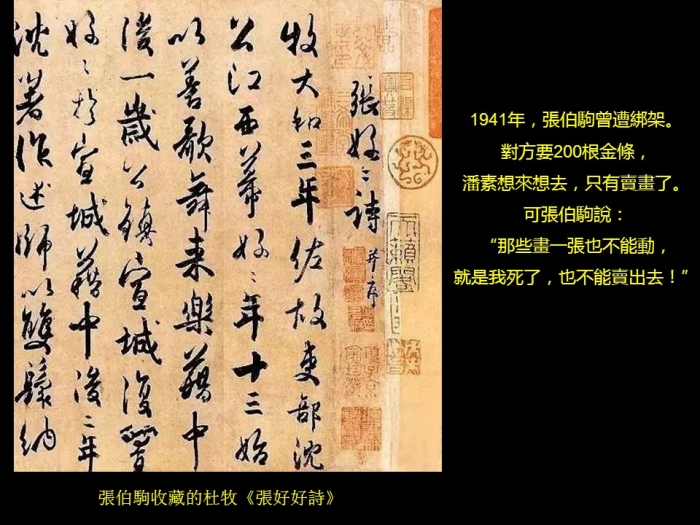 張好〻詩 并序
牧大和三年佐故吏部沈
公江西幕好〻年十三始
以善歌舞来樂籍中
後一歲公鎮宣城復置
好〻於宣城籍中後二年
沈著作述師以雙鬟納
天籟閣
1941年，張伯駒曾遭綁架。
對方要200根金條，
潘素想來想去，只有賣畫了。
可張伯駒說：
“那些畫一張也不能動，
就是我死了，也不能賣出去！”
張伯駒收藏的杜牧《張好好詩》